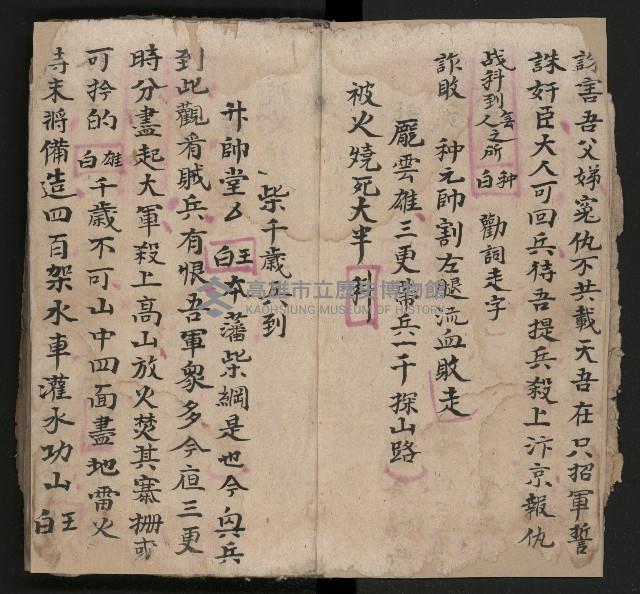 言吾父娣寃仇不共載天吾在只招軍誓
誅奸臣大人可回兵待吾提兵殺上汴京報仇
战科到無人之所 种白 勸詞走字
詐敗 种元帥割左腿流血敗走
龐雲雄三更帶兵一千探山路
被火燒死大半 科
柴千歲五到
升帥堂 王白 本藩柴綱是也今與兵
到此觀看賊兵有恨吾軍衆多今夜三更
時分盡起大軍殺上高山放火焚其寨柵或
可擒的 雄白 千歲不可山中四面盡地雷火
待末將備造四百架水車灌水功山 王白
高雄市立歷史博物館
KAOHSIUNG MUSEUM OF HISTORY